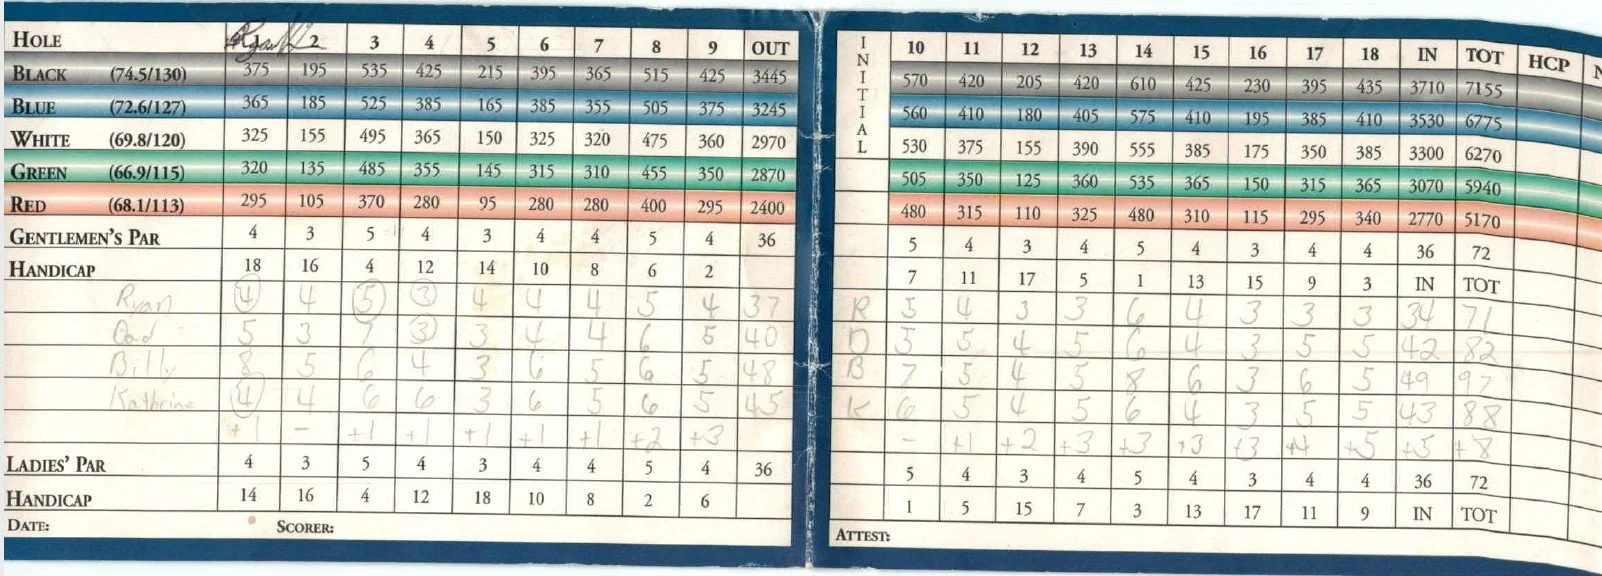 HOLE 1 2 3 4 5 6 7 8 9 OUT INITIAL 10 11 12 13 14 15 16 17 18 IN TOT HCP N
BLACK (74.5/130) 375 195 535 425 215 395 365 515 425 3445 570 420 205 420 610 425 230 395 435 3710 7155
BLUE (72.6/127) 365 185 525 385 165 385 355 505 375 3245 560 410 180 405 575 410 195 385 410 3530 6775
WHITE (69.8/120) 325 155 495 365 150 325 320 475 360 2970 530 375 155 390 555 385 175 350 385 3300 6270
GREEN (66.9/115) 320 135 485 355 145 315 310 455 350 2870 505 350 125 360 535 365 150 315 365 3070 5940
RED (68.1/113) 295 105 370 280 95 280 280 400 295 2400 480 315 110 325 480 310 115 295 340 2770 5170
GENTLEMEN'S PAR 4 3 5 4 3 4 4 5 4 36 5 4 3 4 5 4 3 4 4 36 72
HANDICAP 18 16 4 12 14 10 8 6 2 7 11 17 5 1 13 15 9 3 IN TOT
Ryan 4 4 5 3 4 4 4 5 4 37 R 5 4 3 3 6 4 3 3 3 34 71
Dad 5 3 7 3 3 4 4 6 5 40 D 5 5 4 5 6 4 3 5 5 42 82
Billy 8 5 6 4 3 6 5 6 5 48 B 7 5 4 5 8 6 3 6 5 49 97
Kathrine 4 4 6 6 3 6 5 6 5 45 K 6 5 4 5 6 4 3 5 5 43 88
+1 – +1 +1 +1 +1 +1 +2 +3 – +1 +2 +3 +3 +3 +3 +4 +5 +5 +8
LADIES' PAR 4 3 5 4 3 4 4 5 4 36 5 4 3 4 5 4 3 4 4 36 72
HANDICAP 14 16 4 12 18 10 8 2 6 1 5 15 7 3 13 17 11 9 IN TOT
DATE: SCORER: ATTEST: